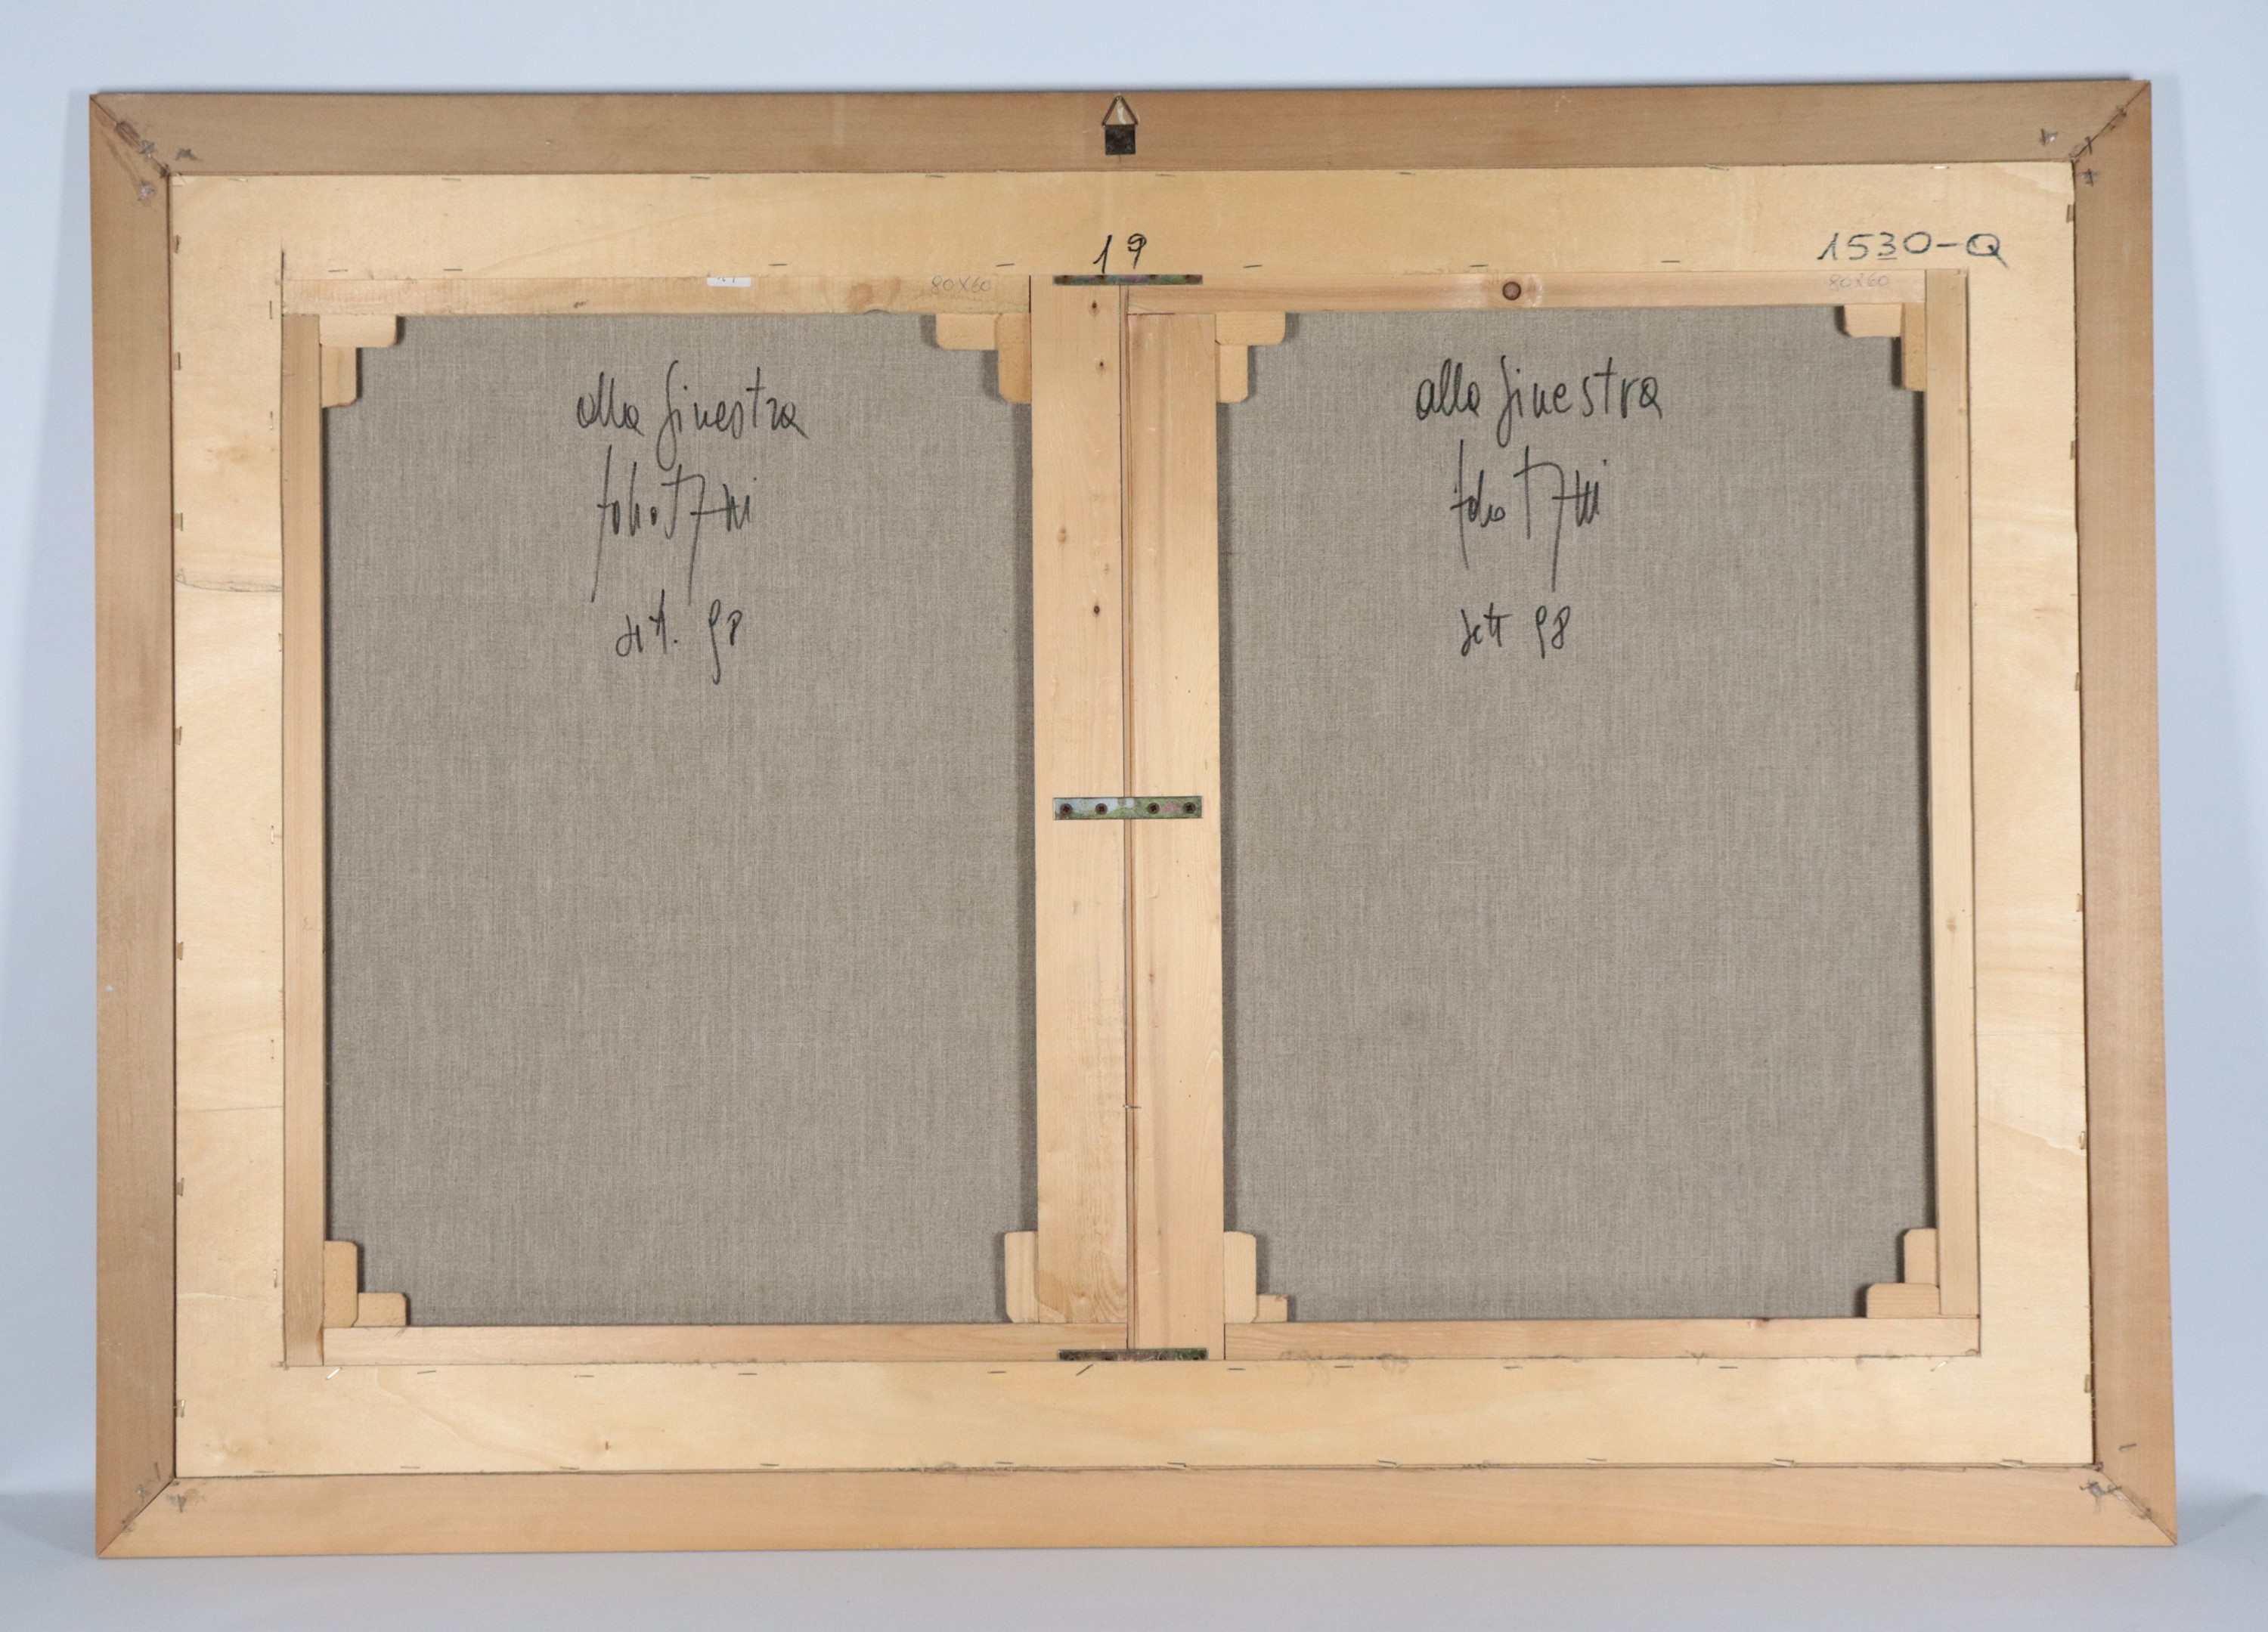 19
1530-Q
80x60
80x60
alla finestra
sett. 98
alla finestra
sett 98